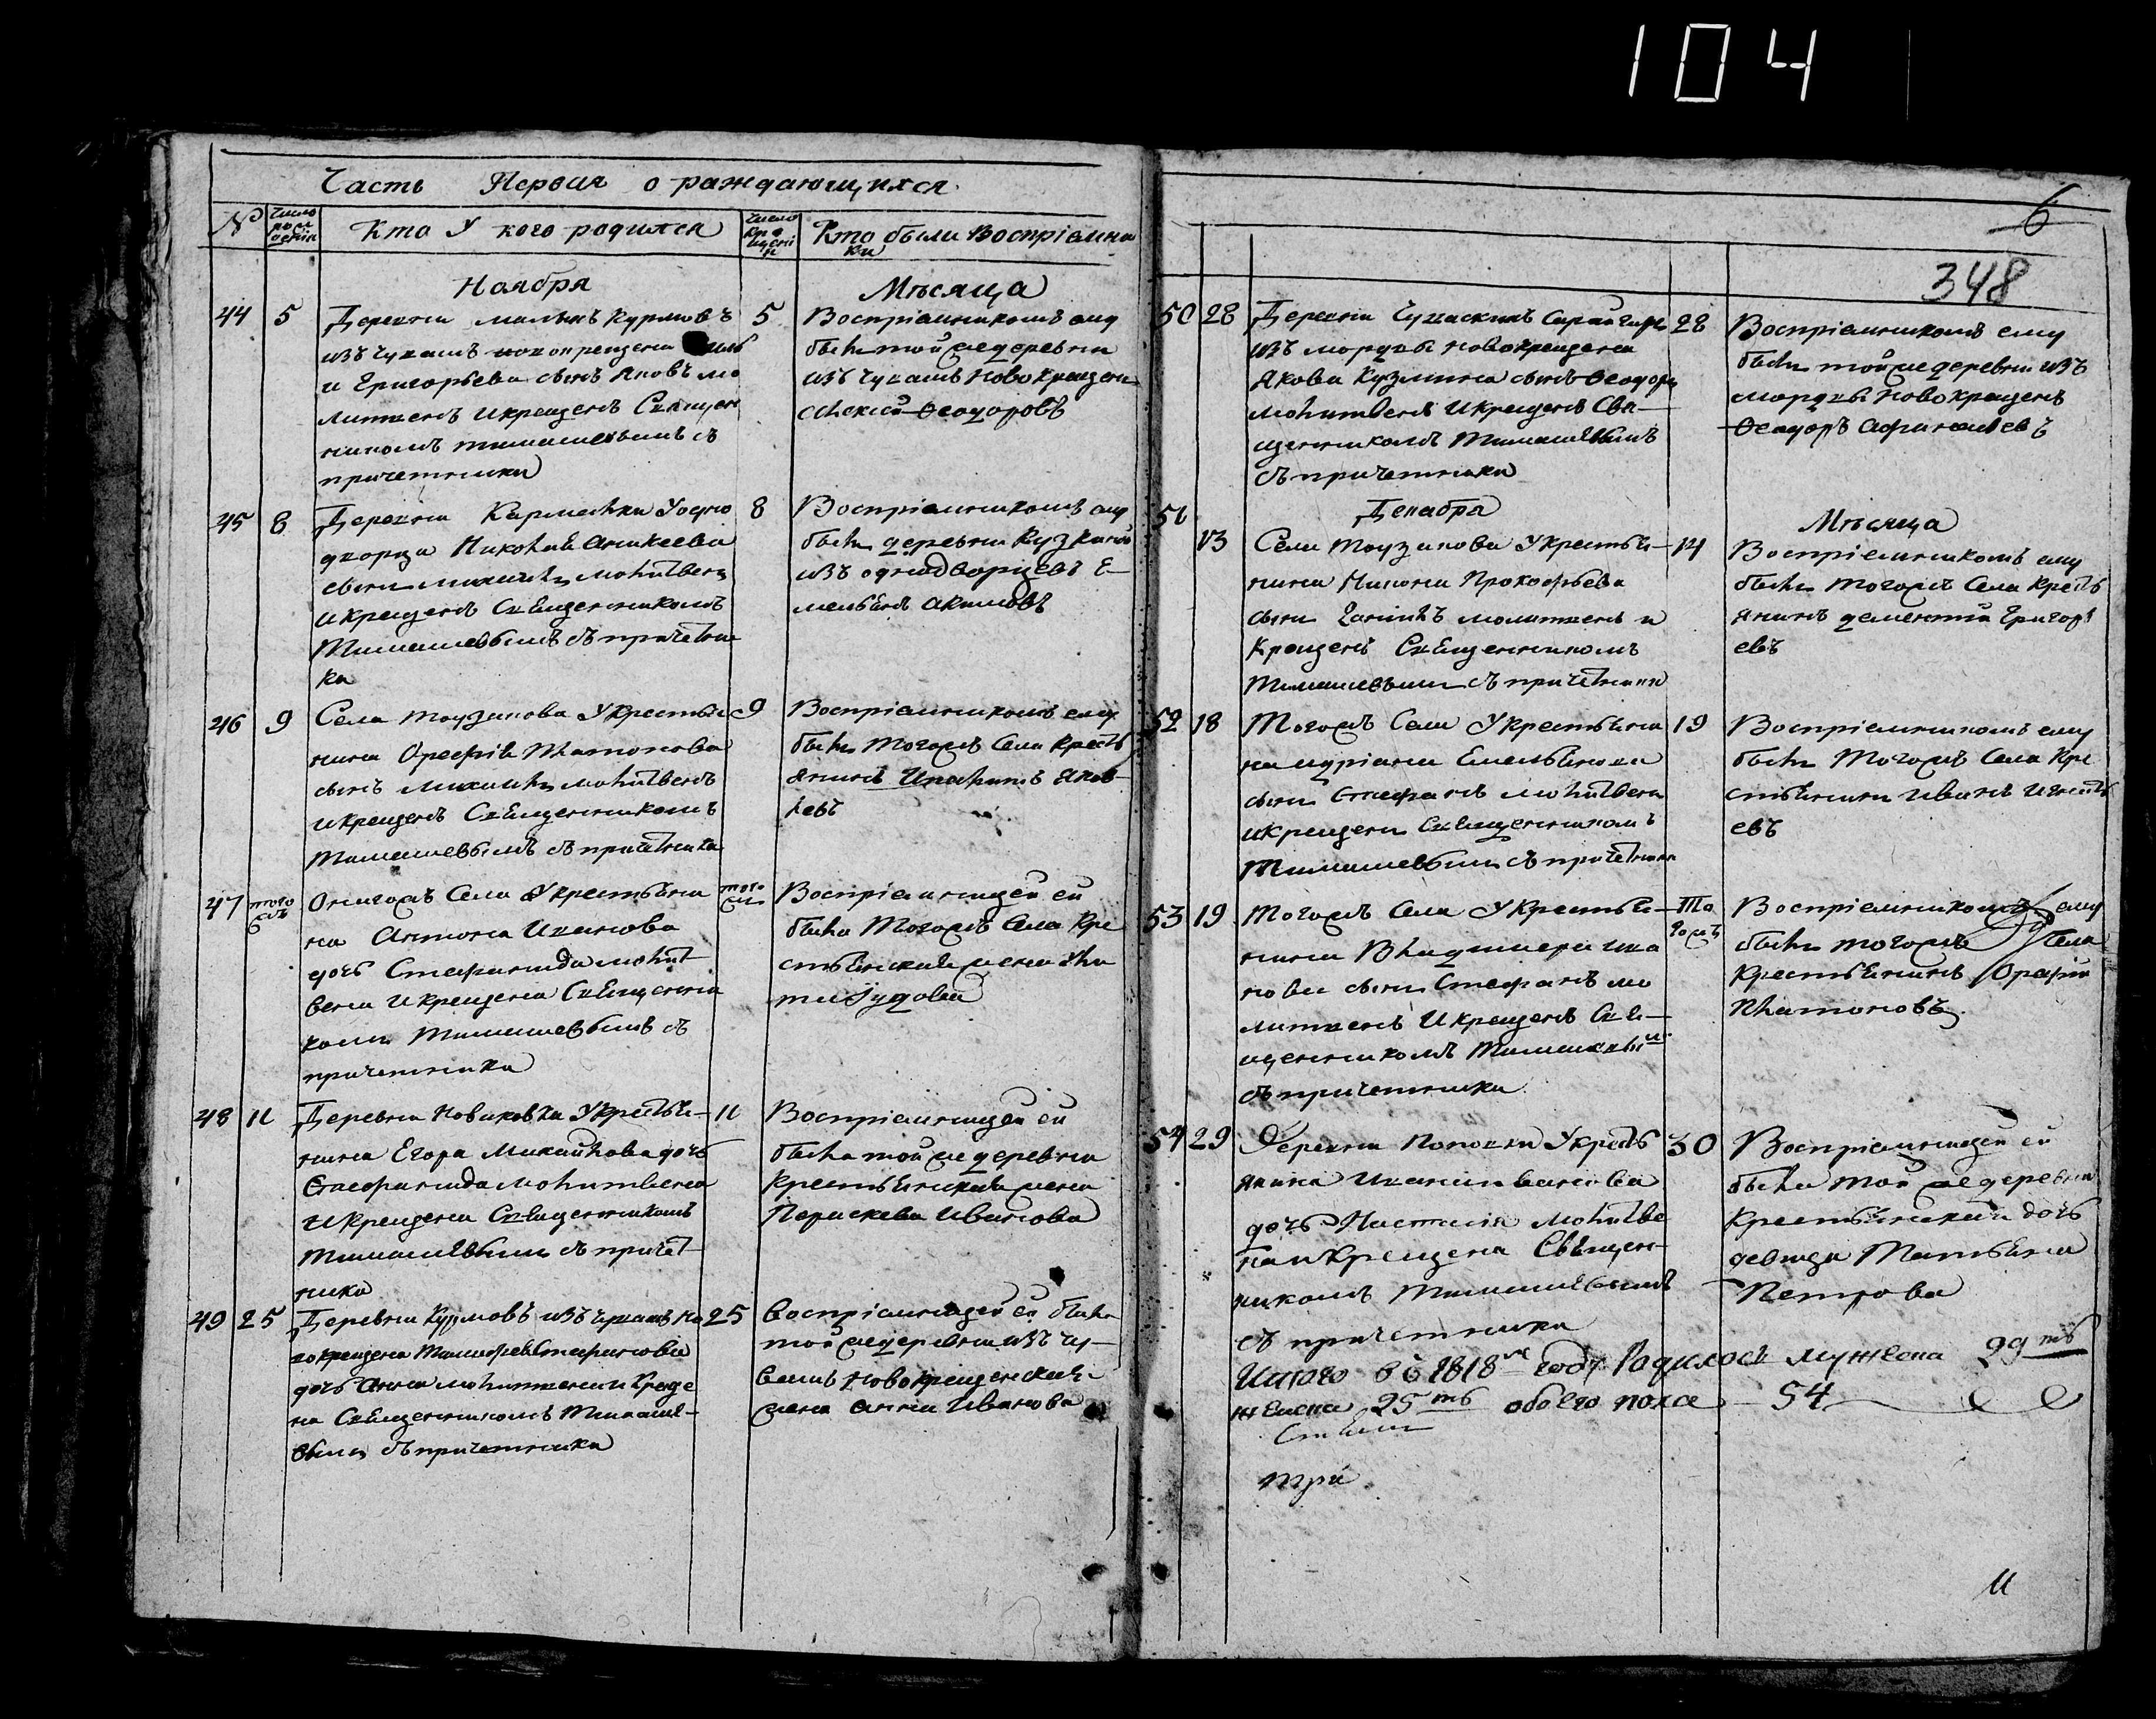 104
Часть Первая о раждающихся
№
Число рождения
Кто У кого родился
Число крещения
Кто были Воспріемники
Ноября
Мѣсяца
44 5
Деревни малыхъ Курмовъ
изъ чувашъ новокрещена
и Григорьева сынъ Яковъ мо
литвенъ и крещенъ Священ
никомъ тимашевымъ съ
причетники
5
Воспріемникомъ ему
былъ тойже деревни
изъ чувашъ Новокрещенъ
Алексѣй Ѳеодоровъ
45 8
Деревни Кармалки У одно
дворца Николая Аникеева
сынъ михаилъ молитвенъ
и крещенъ Священникомъ
Тимашевымъ съ причетни
ки
8
Воспріемникомъ ему
былъ деревни
изъ однодворцевъ Е-
мельянъ Акимовъ
46 9
Села Таузакова У Крестья
нина Орефія Платонова
сынъ Михаилъ молитвенъ
и крещенъ Священникомъ
Тимашевымъ съ причетники
9
Воспріемникомъ ему
былъ Тогожъ Села Кресть
янинъ Ипалитъ Яков-
левъ
47 тогожъ
Оногожъ Села У Крестьяни
на Антона Иванова
дочь Стефанида молит
вена и крещена Священни
комъ Тимашевымъ съ
причетники
тогожъ
Воспріемницей ей
была Тогожъ Села Кре
стьянская жена
48 11
Деревни Новиковки У Крестья-
нина Егора Михайлова дочь
Стефанида молитвена
и крещена Священникомъ
тимашевымъ съ причет-
ники
11
Воспріемницей ей
была тойже деревни
Крестьянская жена
Параскева Иванова
49 25
Деревни Курмовъ изъ чувашъ но
вокрещена Тимофея Стефанова
дочь Анна молитвена и креще
на Священникомъ Тимаше-
вымъ съ причетники
25
Воспріемницей ей была
тойже деревни изъ чу-
вашъ новокрещенская
жена Анна Иванова
6
348
50 28
Деревни Чуваскихъ
изъ мордвы новокрещена
Якова Кузмина сынъ Ѳеодоръ
молитвенъ и крещенъ Свя-
щенникомъ Тимашевымъ
съ причетники
28
Воспріемникомъ ему
былъ тойже деревни изъ
мордвы новокрещенъ
Ѳеодоръ Афанасьевъ
Декабря
Мѣсяца
51 13
Села Таузакова У крестья-
нина Никона Прокофьева
сынъ Даніилъ молитвенъ и
крещенъ Священникомъ
Тимашевымъ съ причетники
14
Воспріемникомъ ему
былъ тогожъ Села Кресть
янинъ дементій Григорь
евъ
52 18
Тогожъ Села У крестьяни
на Адріана Емельянова
сынъ Стефанъ молитвенъ
и крещенъ Священникомъ
Тимашевымъ съ причетники
19
Воспріемникомъ ему
былъ Тогожъ Села Кре
стьянинъ Иванъ Игнать
евъ
53 19
Тогожъ Села У Крестья-
нина Владимера Ива
нова сынъ Стефанъ мо
литвенъ и крещенъ Свя-
щенникомъ Тимашевым
съ причетники
Тогожъ
Воспріемникомъ ему
былъ тогожъ Села
крестьянинъ Орефій
Платоновъ
54 29
Деревни Поповки У кресть
янина Ивана Иванова
дочь Настасія молитве
на и крещена Священ-
никомъ Тимашевымъ
съ причетники
30
Воспріемницей ей
была тойже деревни
крестьянская дочь
девица Татьяна
Петрова
Итого въ 1818м году Родилось мужеска 29ть
женска 25ть обоего пола 54
три